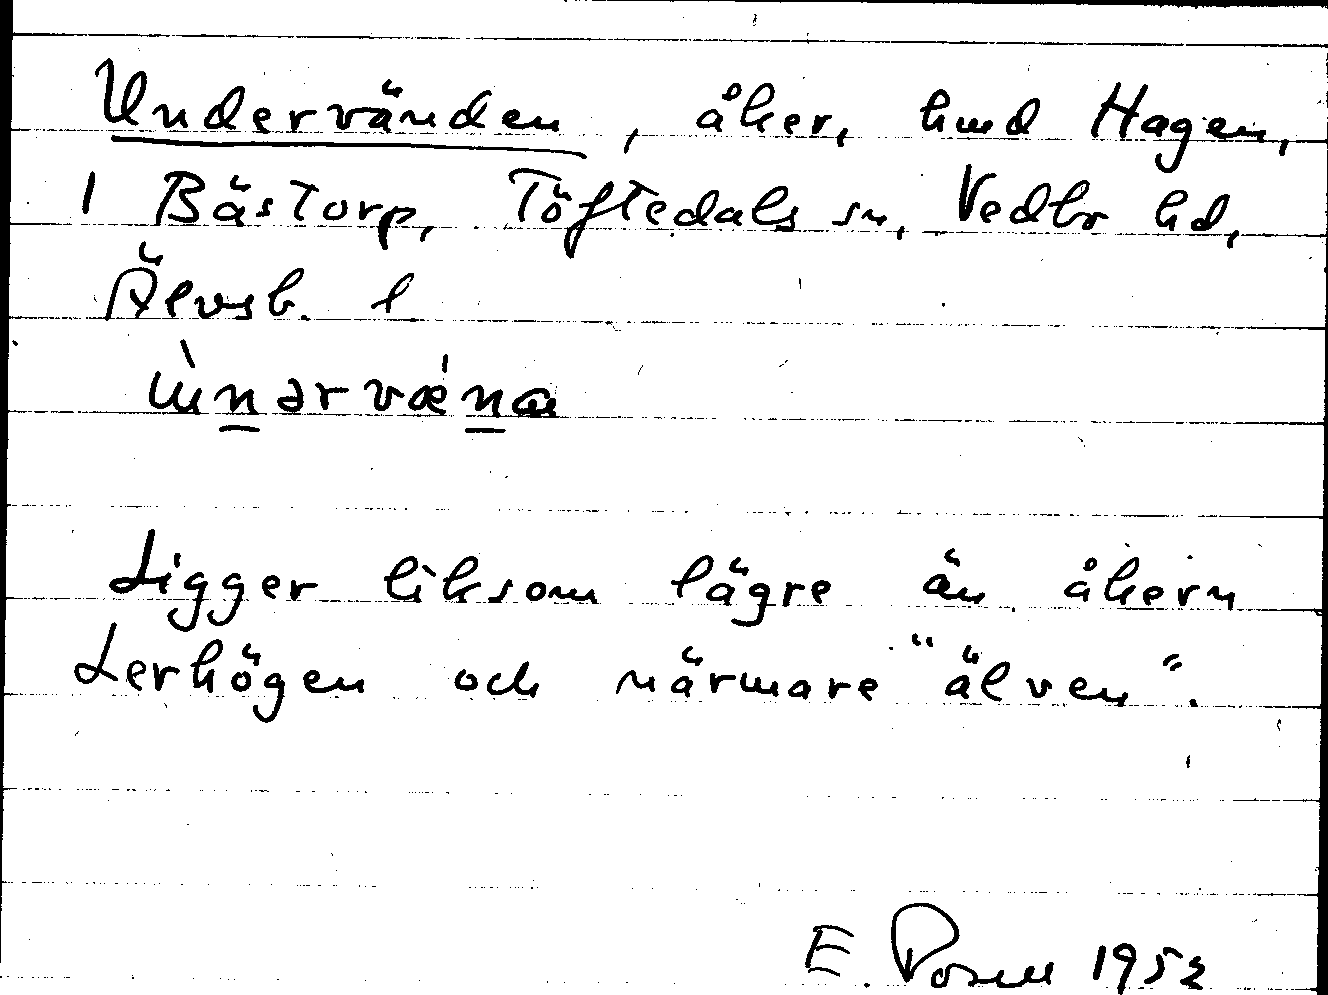 Undervänden, åker, hmd Hagen,
1 Bästorp, Töftedals sn, Vedbo hd,
Älvsb. l
Ligger liksom lägre än åkern
Lerhögen och närmare "älven".
E. 1952